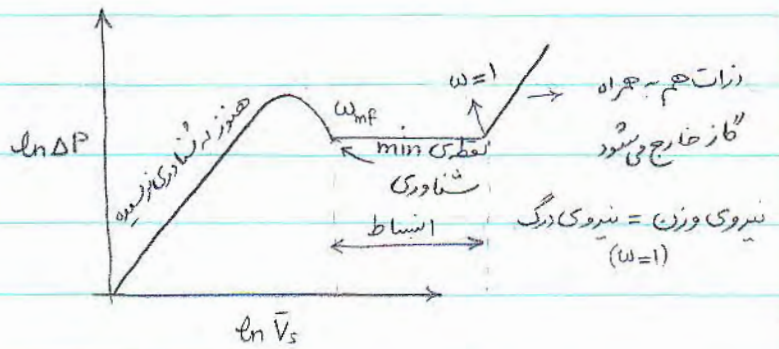 ln ΔP
هنوز به شناوری نرسیده
ω_mf
نقطه‌ی min
شناوری
انبساط
ω=1
ذرات هم به همراه
گاز خارج می‌شود
نیروی وزن = نیروی درگ
(ω=1)
ln V̄s